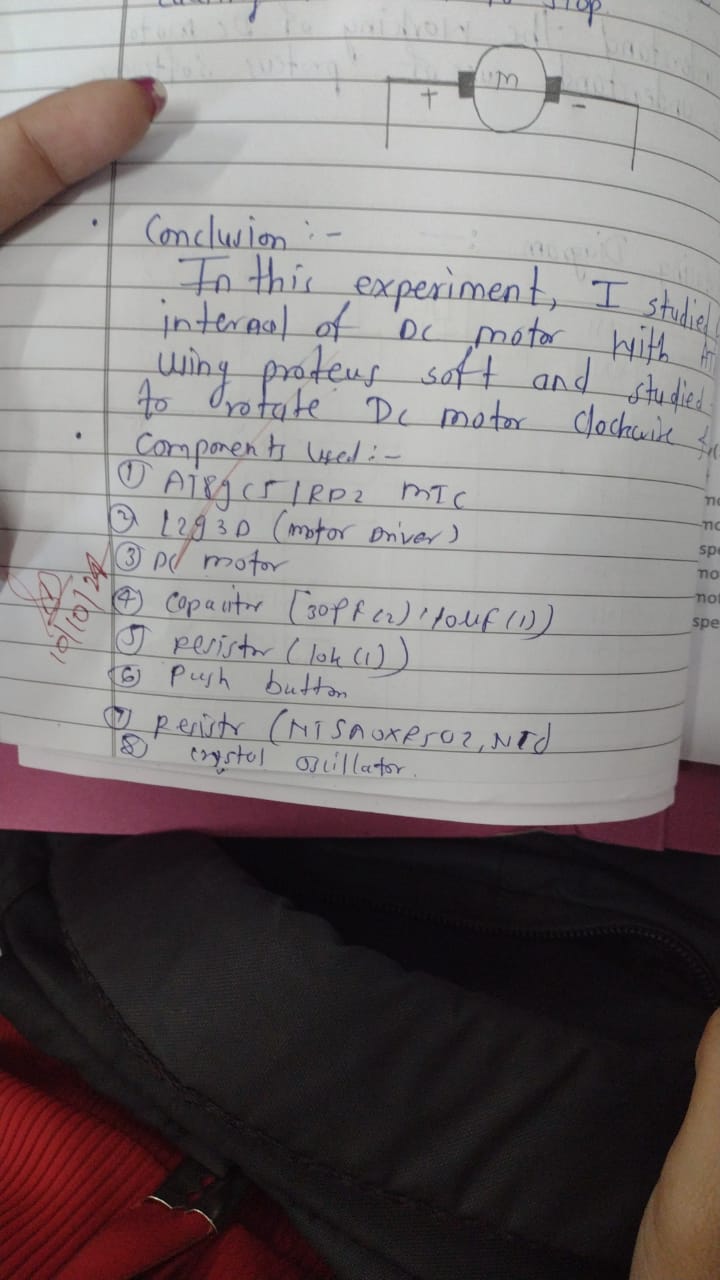 stop.
+ m -
Conclusion :-
In this experiment, I studied
internal of DC motor with
using proteus soft and studied
to rotate DC motor clockwise
Components used :-
① AT89C51RD2 MIC
② L293D (motor Driver)
③ DC motor
④ Capacitor [30pf(2), 10uf(1))
⑤ resistor (10k(1))
⑥ Push button
⑦
⑧ crystal oscillator.
10/10/24
spe
no
spe